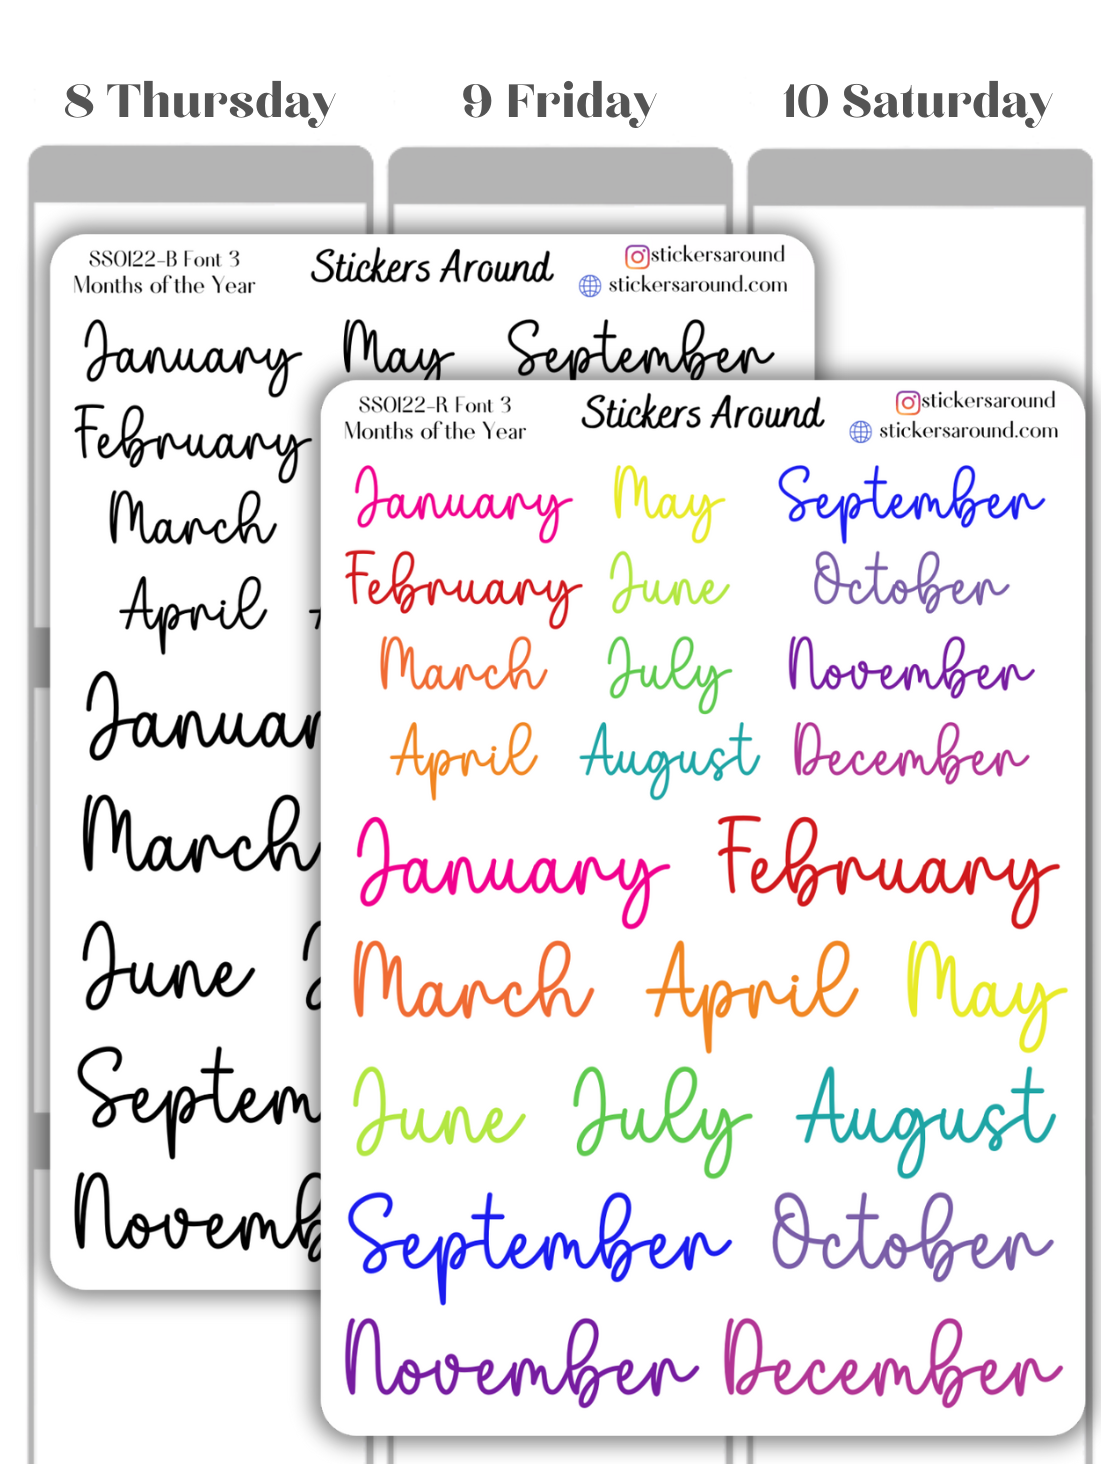 8 Thursday 9 Friday 10 Saturday
SS0122-B Font 3
Months of the Year
Stickers Around
stickersaround
stickersaround.com
January May September
February
March
April
January
March
June
Septem
Novemb
SS0122-R Font 3
Months of the Year
Stickers Around
stickersaround
stickersaround.com
January May September
February June October
March July November
April August December
January February
March April May
June July August
September October
November December